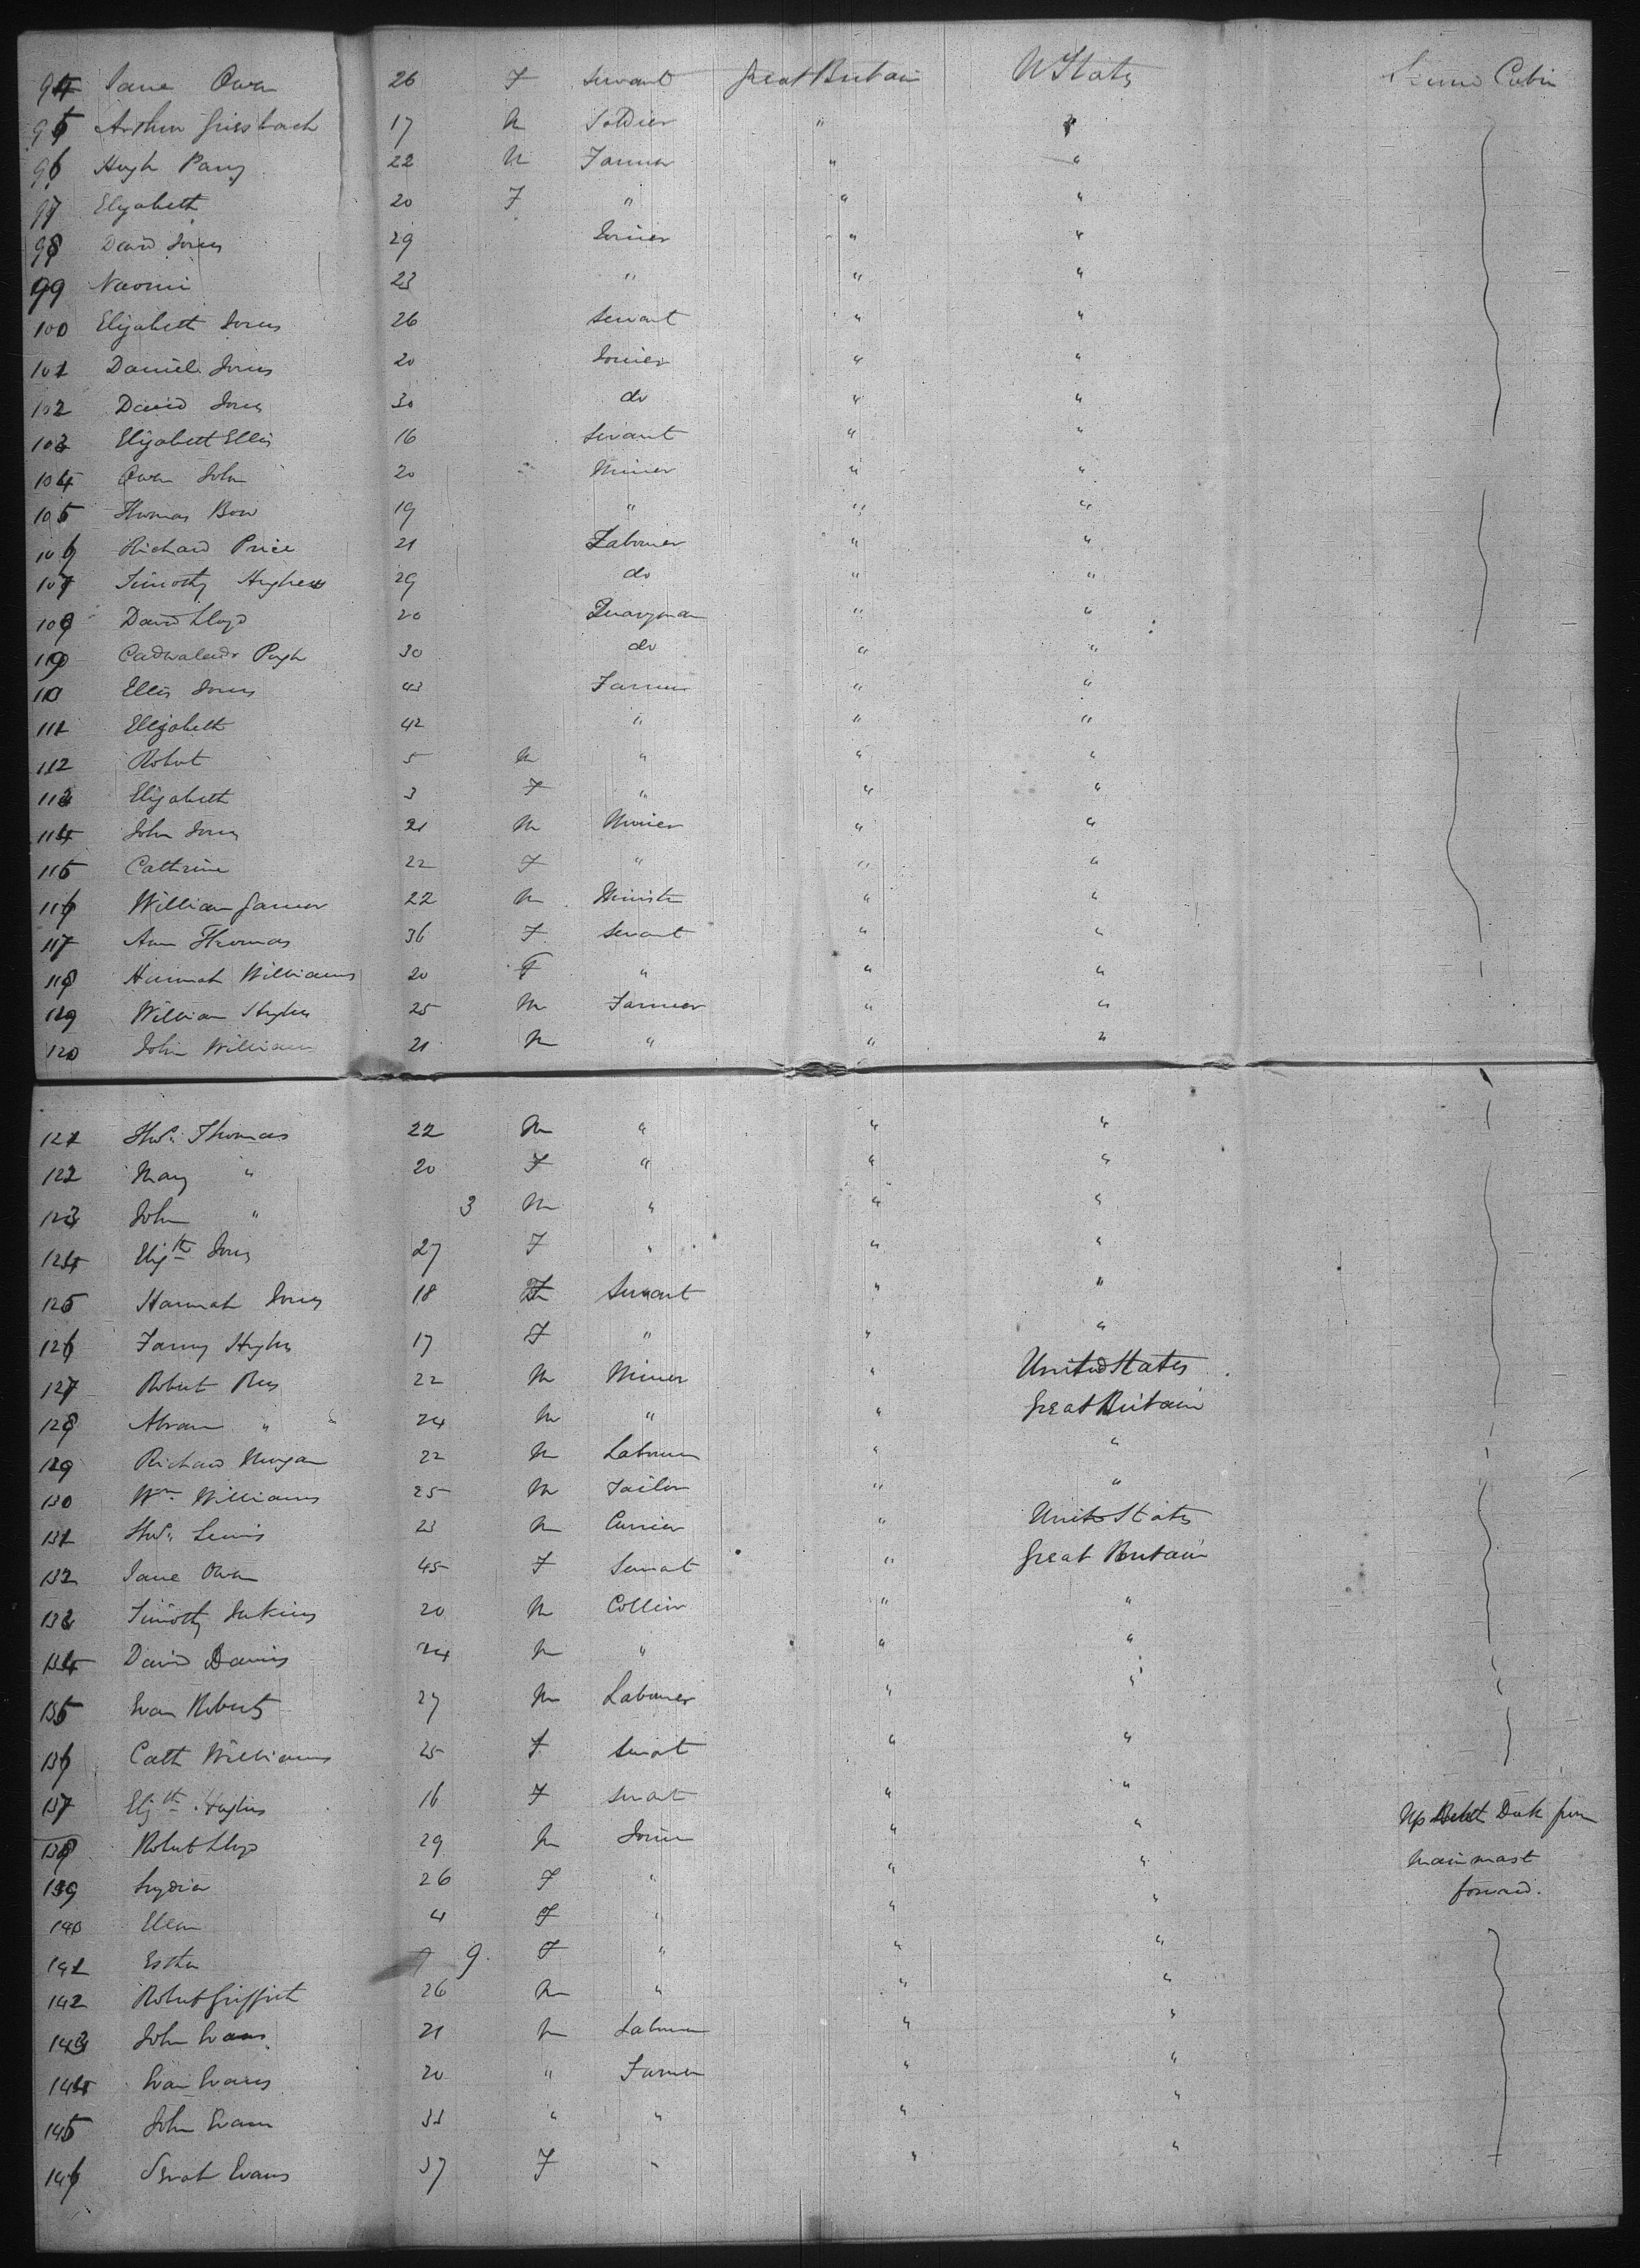 94 Jane Owen 26 F Servant Great Britain U States Cabin
95 Arthur Griesbach 17 M Soldier " "
96 Hugh Parry 22 M Farmer " "
97 Elizabeth 20 F " " "
98 David Jones 29 Joiner " "
99 Naomi 23 " " "
100 Elizabeth Jones 26 Servant " "
101 Daniel Jones 20 Joiner " "
102 David Jones 30 do " "
103 Elizabeth Ellis 16 Servant " "
104 Owen John 20 Miner " "
105 Thomas Bow 19 " " "
106 Richard Price 21 Labourer " "
107 Timothy Hughes 29 do " "
108 David Lloyd 20 Quaryman " "
Cadwalader Pugh 30 do " "
110 Ellis Jones 43 Farmer " "
111 Elizabeth 42 " " "
112 Robert 5 M " " "
113 Elizabeth 3 F " " "
114 John Jones 21 M Miner " "
115 Cathrine 22 F " " "
116 William 22 M Minister " "
117 Ann Thomas 36 F Servant " "
118 Hannah Williams 20 F " " "
119 William Hughes 25 M Farmer " "
120 John Williams 21 M " " "
121 Thos: Thomas 22 M " " "
122 Mary " 20 F " " "
123 John " 3 M " " "
124 Elizth Jones 27 F " " "
125 Hannah Jones 18 F Servant " "
126 Fanny Hughes 17 F " " "
127 Robert Rees 22 M Miner " United States
128 Abram " 24 M " " Great Britain
129 Richard Morgan 22 M Labourer " "
130 Wm Williams 25 M Tailor " "
131 Thos: Lewis 23 M Currier " United States
132 Jane Owen 45 F Servant " Great Britain
133 Timothy Jenkins 20 M Collier " "
134 David Davies 24 M " " "
135 Evan Roberts 27 M Labourer " "
136 Cath Williams 25 F Servant " "
137 Elizth Hughes 16 F Servant " "
138 Robert Lloyd 29 M Joiner " " Up Deck from
139 Lydia 26 F " " " Main mast
140 Ellen 4 F " " " forward.
141 Esther 9 F " " "
142 Robert Griffith 26 M " " "
143 John Evans 21 M Labourer " "
144 Evan Evans 20 " Farmer " "
145 John Evans 33 " " " "
146 Sarah Evans 37 F " " "